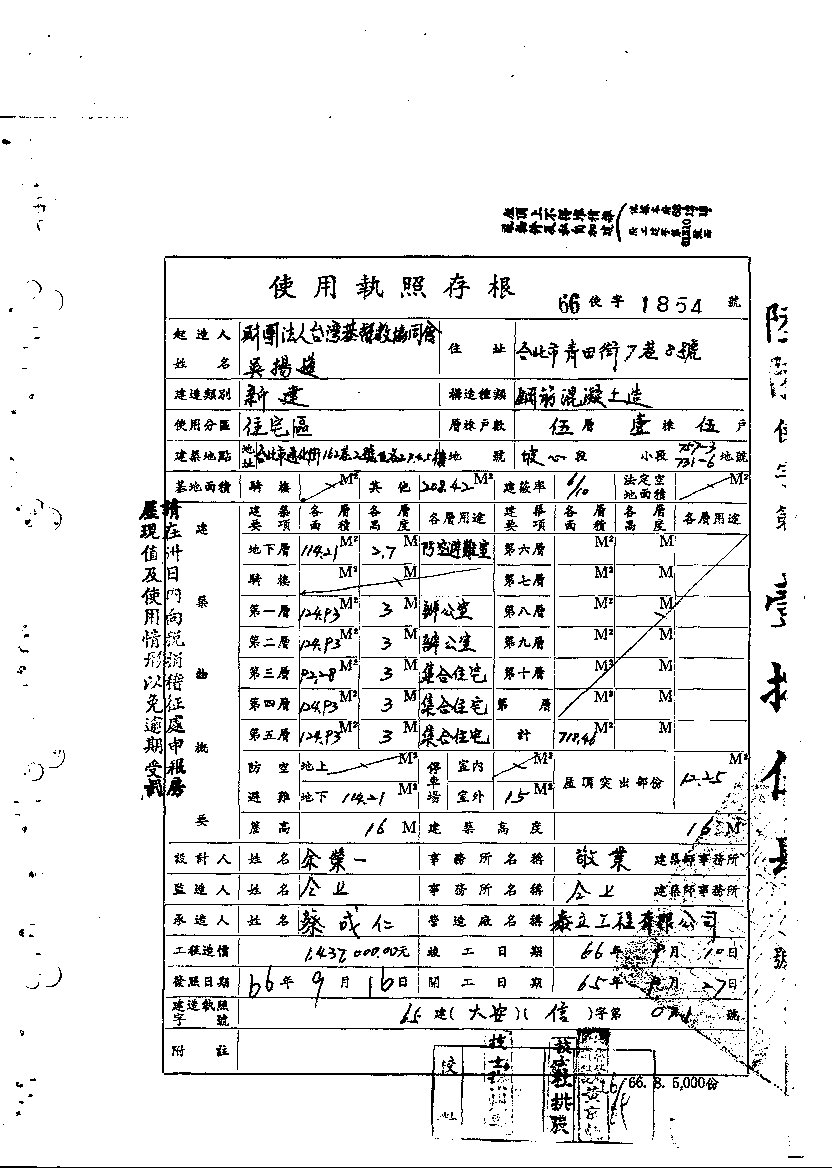 使用執照存根
66 使字 1854 號
起造人姓名 財團法人台灣基督教協同會 吳揚 住址 台北市青田街7巷8號
建造類別 新建 構造種類 鋼筋混凝土造
使用分區 住宅區 層棟戶數 伍層 壹棟 伍戶
建築地點 地址 台北市通化街162巷2號 地號 坡心段 小段 757-3 731-6 地號
基地面積 騎樓 M² 其他 208.42 M² 建蔽率 6/10 法定空地面積 M²
建築物概要
建築要項 各層面積 各層高度 各層用途 建築要項 各層面積 各層高度 各層用途
地下層 114.21 M² 2.7 M 防空避難室 第六層 M² M
騎樓 M² M 第七層 M² M
第一層 124.93 M² 3 M 辦公室 第八層 M² M
第二層 124.93 M² 3 M 辦公室 第九層 M² M
第三層 92.28 M² 3 M 集合住宅 第十層 M² M
第四層 124.93 M² 3 M 集合住宅 第 層 M² M
第五層 124.93 M² 3 M 集合住宅 計 718.46 M² M
防空避難 地上 M² 停車場 室內 M² 屋頂突出部份 12.25 M²
地下 114.21 M² 室外 15 M²
簷高 16 M 建築高度 16 M
設計人 姓名 余榮一 事務所名稱 敬業 建築師事務所
監造人 姓名 仝上 事務所名稱 仝上 建築師事務所
承造人 姓名 蔡成仁 營造廠名稱 泰立工程有限公司
工程造價 1437000.00元 竣工日期 66年9月10日
發照日期 66年9月16日 開工日期 65年 月27日
建造執照字號 65建(大安)(信)字第 號
附註
66. 8. 5,000份
校
請在卅日內向稅捐稽征處申報房
屋現值及使用情形以免逾期受罰